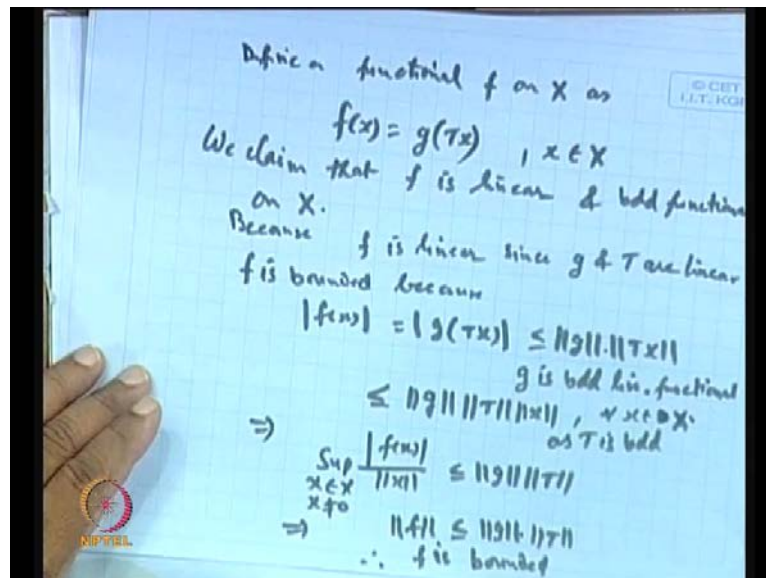 Define a functional f on X as
© CET
I.I.T. KGP
f(x) = g(Tx) , x ∈ X
We claim that f is linear & bdd function
on X.
Because f is linear since g & T are linear
f is bounded because
|f(x)| = |g(Tx)| ≤ ||g||.||Tx||
g is bdd lin. functional
≤ ||g|| ||T|| ||x|| , ∀ x ∈ X.
as T is bdd
⇒ Sup |f(x)| / ||x|| ≤ ||g|| ||T||
x ∈ X
x ≠ 0
⇒ ||f|| ≤ ||g||.||T||
∴ f is bounded
NPTEL